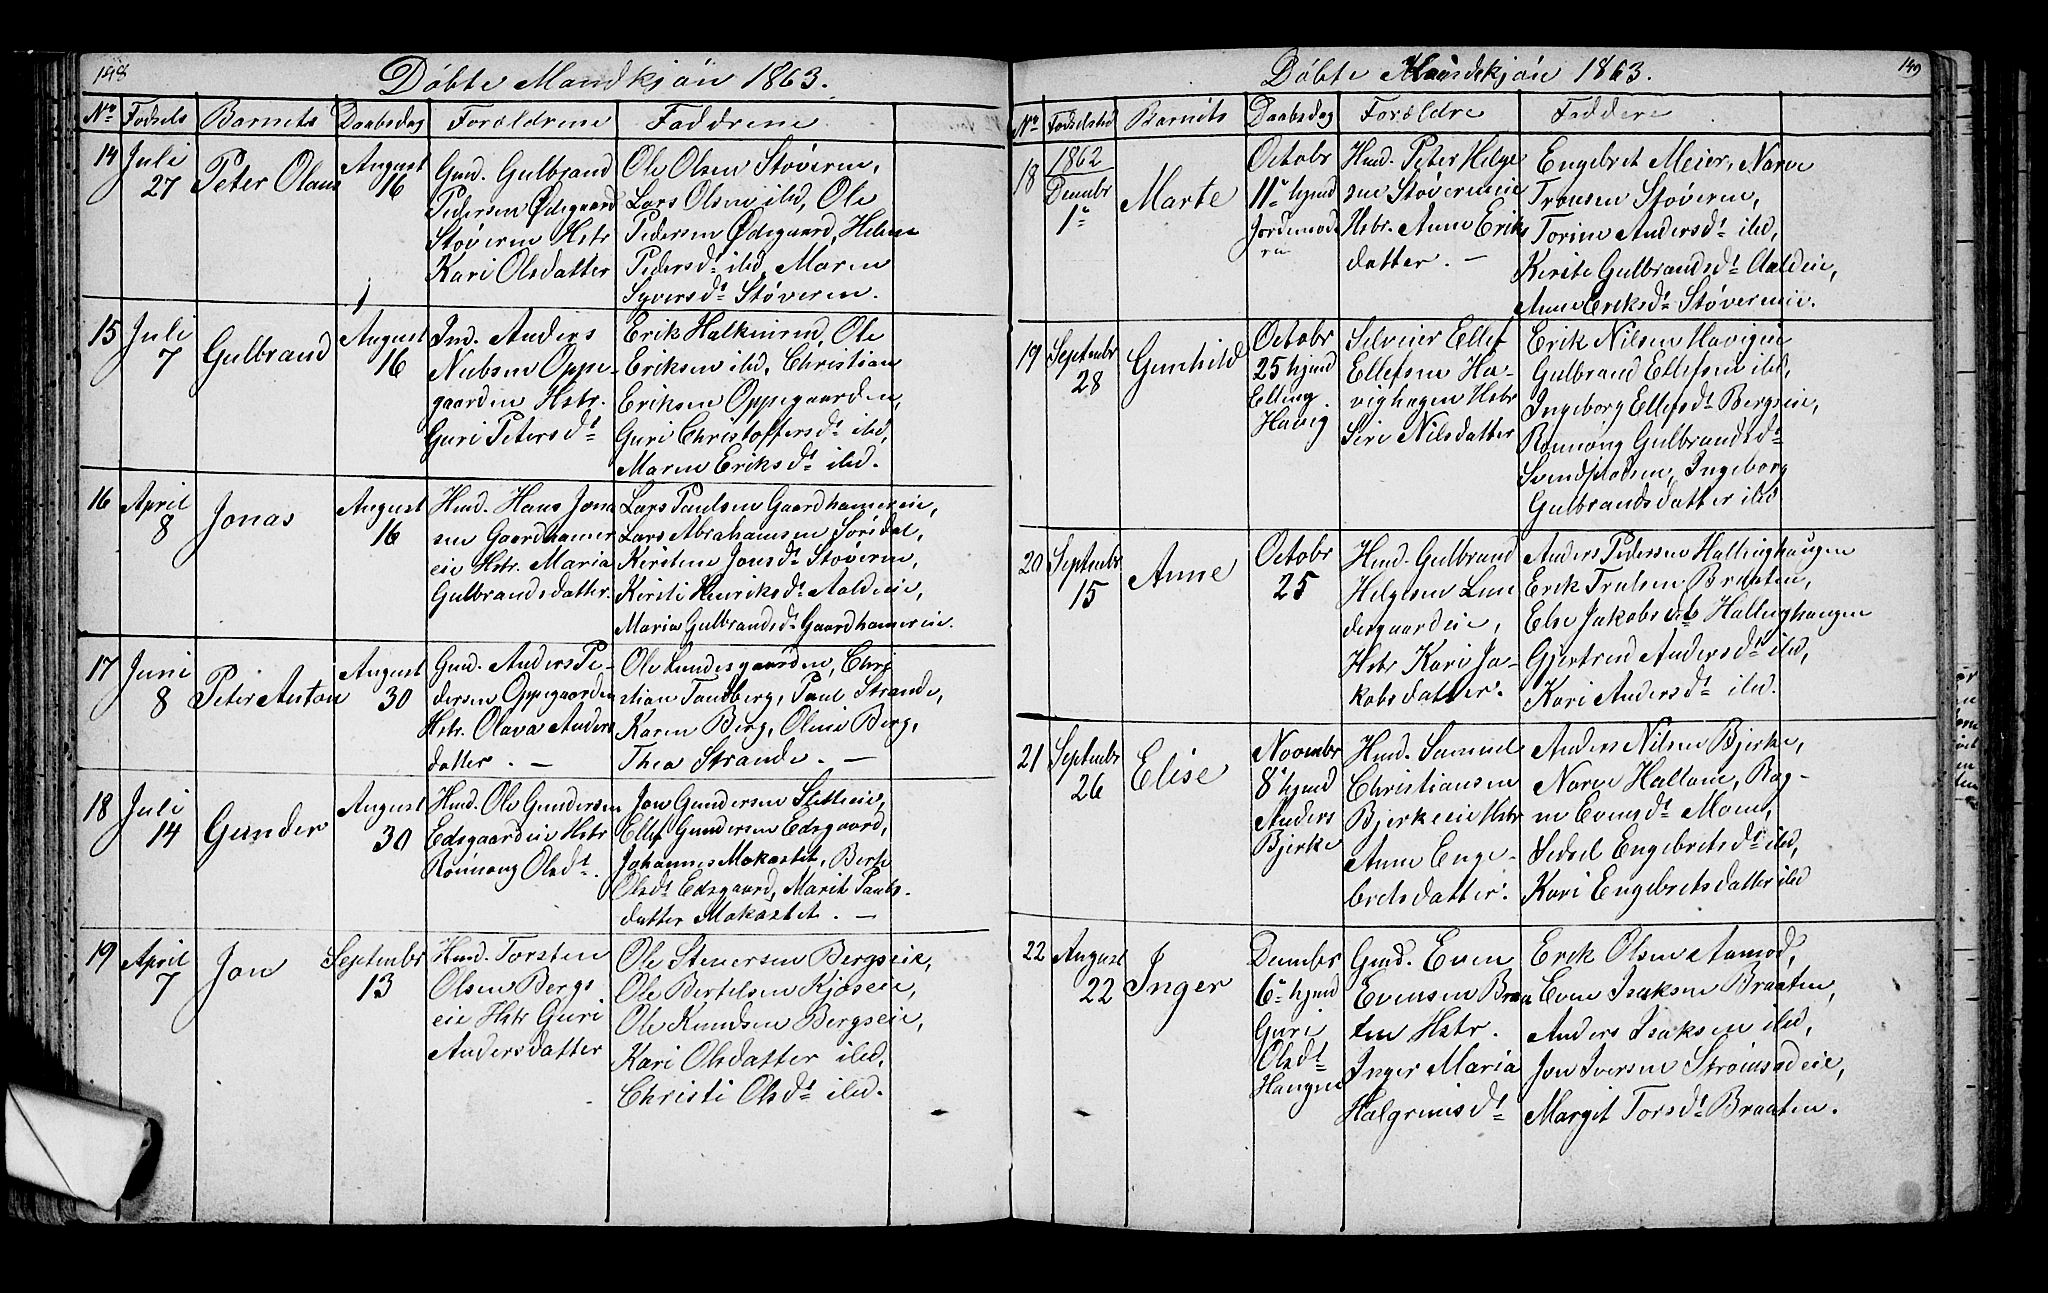 148
Döbte Mandkjön 1863.
No Födsels Barnets Daabsdag Foröldrene Faddrene
14 Juli 27 Peter Olaus August 16
Gmd. Gulbrand
Pedersen Ødegaard
Støveren Hstr
Kari Olsdatter
Ole Olsen Støveren,
Lars Olsen ibd, Ole
Pedersen Ødegaard, Helene
Pedersdr ibd, Maren
Syversdr Støveren.
15 Juli 7 Gulbrand August 16
Ind. Anders
Nielsen Oppe-
gaarden Hstr.
Guri Petersdr
Erik Halkinrud, Ole
Eriksen ibd, Christian
Eriksen Oppegaarden,
Guri Christoffersdr ibd,
Maren Eriksdr ibd.
16 April 8 Jonas August 16
Hmd. Hans Jona
sen Gaardhamer
eie Hstr. Maria
Gulbrandsdatter.
Lars Paulsen Gaardhamereie,
Lars Abrahamsen Sørdal,
Kirsten Jonsdr Støveren,
Kirsti Henriksdr Aaldeie,
Maria Gulbrandsdr Gaardhamereie.
17 Juni 8 Peter Anton August 30
Gmd. Anders Pe-
dersen Oppegaarden
Hstr. Olava Anders
datter. —
Ole Lundesgaarden, Chri
stian Tandberg, Paul Strande,
Karen Berg, Olina Berg,
Thea Strande. —
18 Juli 14 Gunder August 30
Hmd. Ole Gundersen
Edsgaardeie Hstr
Rönnoug Olsdr.
Jon Gundersen Sletteeie,
Ellef Gundersen Edsgaard,
Johannes Mokastet, Berte
Olsdr Edsgaard, Marit Pauls-
datter Mokastet. —
19 April 7 Jon September 13
Hmd. Torsten
Olsen Bergs
eie Hstr Guri
Andersdatter
Ole Stenersen Bergseie,
Ole Bertelsen Kjöseie,
Ole Knudsen Bergseie,
Kari Olsdatter ibd,
Christi Olsdr ibd.
149
Döbte Kvindekjön 1863.
No Fødselstid Barnets Daabsdag Foröldre Faddere
18 1862 Decembr 1 Marte
Octobr
11 hjmd
Jordemode
ren
Hmd. Peter Helge
sen Støverneie
Hstr. Anne Eriks
datter. —
Engebret Meier, Narve
Tronsen Støveren,
Torine Andersdr ibd,
Kirsti Gulbrandsdr Aaldeie,
Anne Eriksdr Støverneie.
19 Septembr 28 Gunhild
Octobr
25 hjmd
Elling
Havig
Selveier Ellef
Ellefsen Ha-
vighagen Hstr
Siri Nilsdatter
Erik Nilsen Havigeie
Gulbrand Ellefsen ibd,
Ingeborg Ellefsdr Bergseie,
Rönnoug Gulbrandsdr
Svendspladsen, Ingeborg
Gulbrandsdatter ibd
20 Septembr 15 Anne Octobr 25
Hmd. Gulbrand
Helgesen Lun
desgaardeie,
Hstr Kari Ja-
kobsdatter.
Anders Pedersen Hallinghaugen
Erik Trulsen Braaten,
Else Jakobsdtr Hallinghaugen
Gjertrud Andersdr ibd,
Kari Andersdr ibd.
21 Septembr 26 Elise
Novembr
8 hjmd
Anders
Bjerke
Hmd. Samuel
Christiansen
Bjerkeeie Hstr
Anne Enge-
bretsdatter.
Anders Nilsen Bjerke,
Narve Hallane, Rag-
ne Evensdr Moen,
Sidsel Engebretsdr ibd,
Kari Engebretsdatter ibd
22 August 22 Inger
Decembr
6 hjmd
Guri
Olsdr
Haugen
Gmd. Even
Evensen Braa
ten Hstr.
Inger Maria
Halgrimsdr
Erik Olsen Aamod,
Even Isaksen Braaten,
Anders Isaksen ibd,
Jon Iversen Strömsodeie,
Margit Torsdr Braaten.